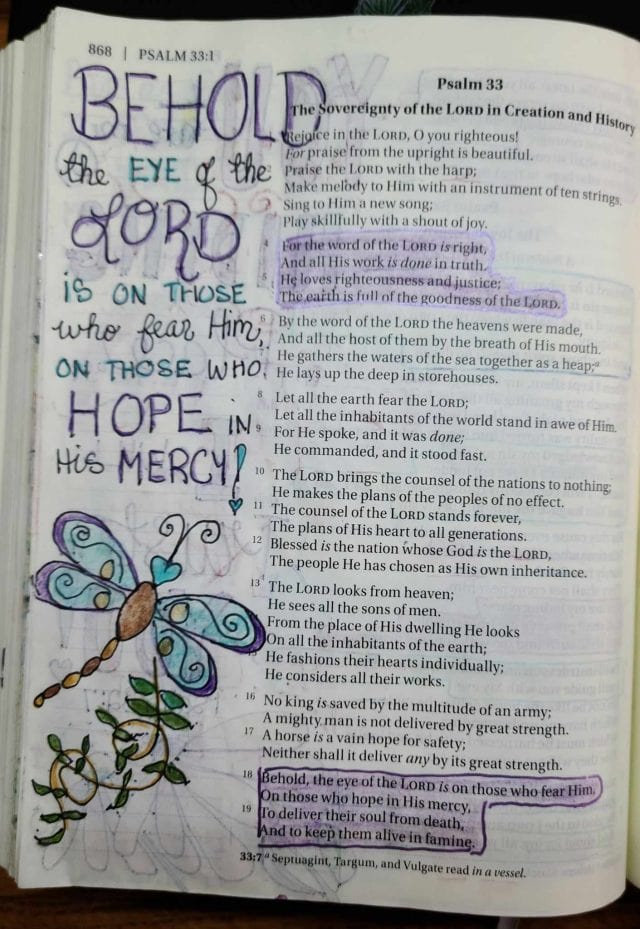 868 | PSALM 33:1
BEHOLD
the EYE of the
LORD
is ON THOSE
who fear Him,
ON THOSE WHO
HOPE IN
His MERCY!
Psalm 33
The Sovereignty of the LORD in Creation and History
Rejoice in the LORD, O you righteous!
For praise from the upright is beautiful.
Praise the LORD with the harp;
Make melody to Him with an instrument of ten strings.
Sing to Him a new song;
Play skillfully with a shout of joy.
4 For the word of the LORD is right,
And all His work is done in truth.
5 He loves righteousness and justice;
The earth is full of the goodness of the LORD.
6 By the word of the LORD the heavens were made,
And all the host of them by the breath of His mouth.
7 He gathers the waters of the sea together as a heap;a
He lays up the deep in storehouses.
8 Let all the earth fear the LORD;
Let all the inhabitants of the world stand in awe of Him.
9 For He spoke, and it was done;
He commanded, and it stood fast.
10 The LORD brings the counsel of the nations to nothing;
He makes the plans of the peoples of no effect.
11 The counsel of the LORD stands forever,
The plans of His heart to all generations.
12 Blessed is the nation whose God is the LORD,
The people He has chosen as His own inheritance.
13 The LORD looks from heaven;
He sees all the sons of men.
From the place of His dwelling He looks
On all the inhabitants of the earth;
He fashions their hearts individually;
He considers all their works.
16 No king is saved by the multitude of an army;
A mighty man is not delivered by great strength.
17 A horse is a vain hope for safety;
Neither shall it deliver any by its great strength.
18 Behold, the eye of the LORD is on those who fear Him,
On those who hope in His mercy,
19 To deliver their soul from death,
And to keep them alive in famine.
33:7 a Septuagint, Targum, and Vulgate read in a vessel.